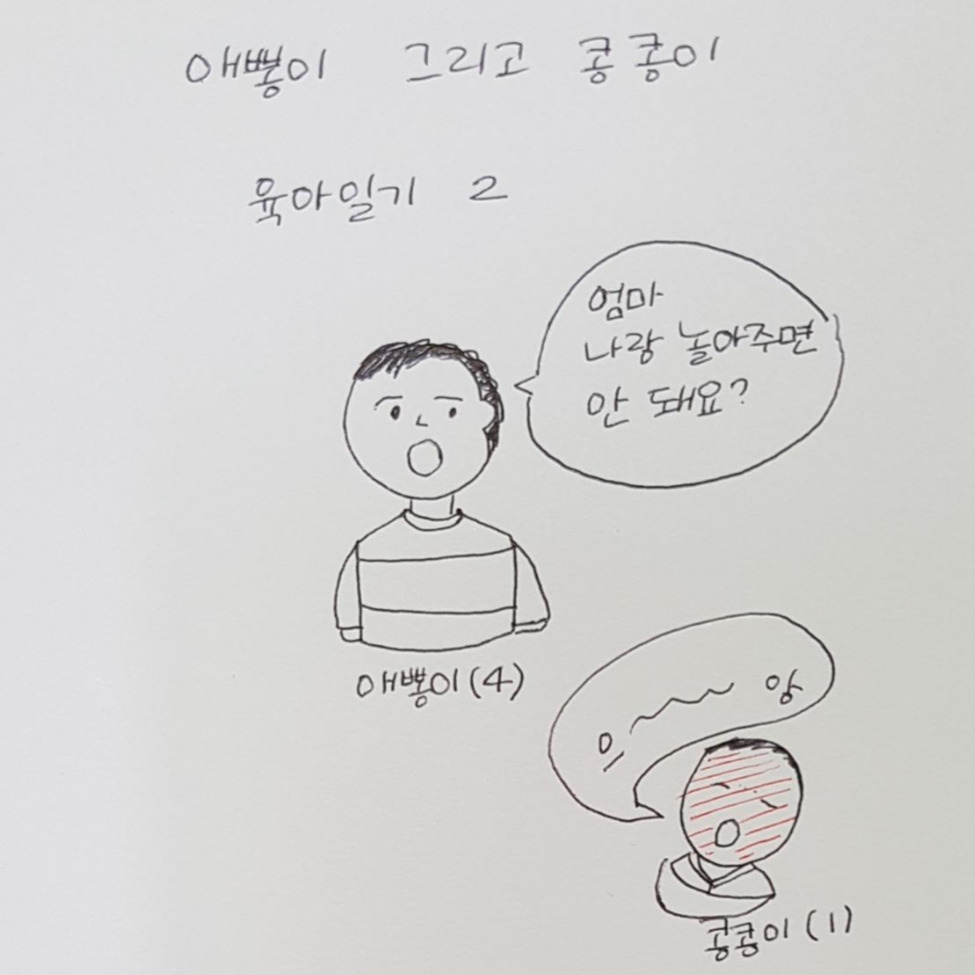 애뽕이 그리고 콩콩이
육아일기 2
엄마
나랑 놀아주면
안 돼요?
애뽕이(4)
으~~~앙
콩콩이(1)